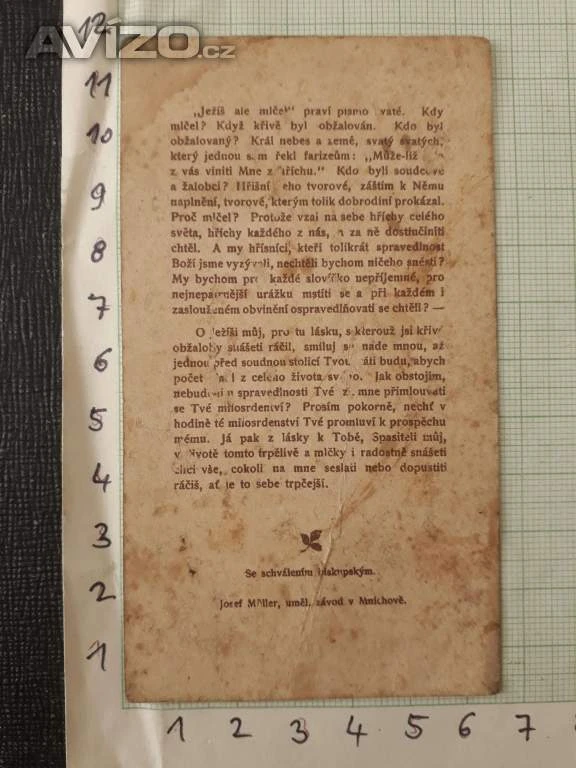 AVÍZO.cz
12
11
10
9
8
7
6
5
4
3
2
1
„Ježíš ale mlčel“ praví písmo svaté. Kdy
mlčel? Když křivě byl obžalován. Kdo byl
obžalovaný? Král nebes a země, svatý svatých,
který jednou sám řekl farizeům: „Může-liž
z vás viniti Mne z hříchu.“ Kdo byli soudcové
a žalobci? Hříšní Jeho tvorové, záštím k Němu
naplnění, tvorové, kterým tolik dobrodiní prokázal.
Proč mlčel? Protože vzal na sebe hříchy celého
světa, hříchy každého z nás, a za ně dostiučiniti
chtěl. A my hříšníci, kteří tolikrát spravedlnost
Boží jsme vyzývali, nechtěli bychom ničeho snésti?
My bychom pro každé slovíčko nepříjemné, pro
nejnepatrnější urážku mstíti se a při každém i
zaslouženém obvinění ospravedlňovati se chtěli? —
O Ježíši můj, pro tu lásku, s kterouž jsi křivé
obžaloby snášeti ráčil, smiluj se nade mnou, až
jednou před soudnou stolicí Tvou státi budu, abych
počet z celého života svého. Jak obstojím,
nebude-li u spravedlnosti Tvé za mne přimlouvati
se Tvé milosrdenství? Prosím pokorně, nechť v
hodině té milosrdenství Tvé promluví k prospěchu
mému. Já pak z lásky k Tobě, Spasiteli můj,
v životě tomto trpělivě a mlčky i radostně snášeti
chci vše, cokoli na mne seslati nebo dopustiti
ráčíš, ať je to sebe trpčejší.
Se schválením biskupským.
Josef Müller, uměl. závod v Mnichově.
1 2 3 4 5 6 7